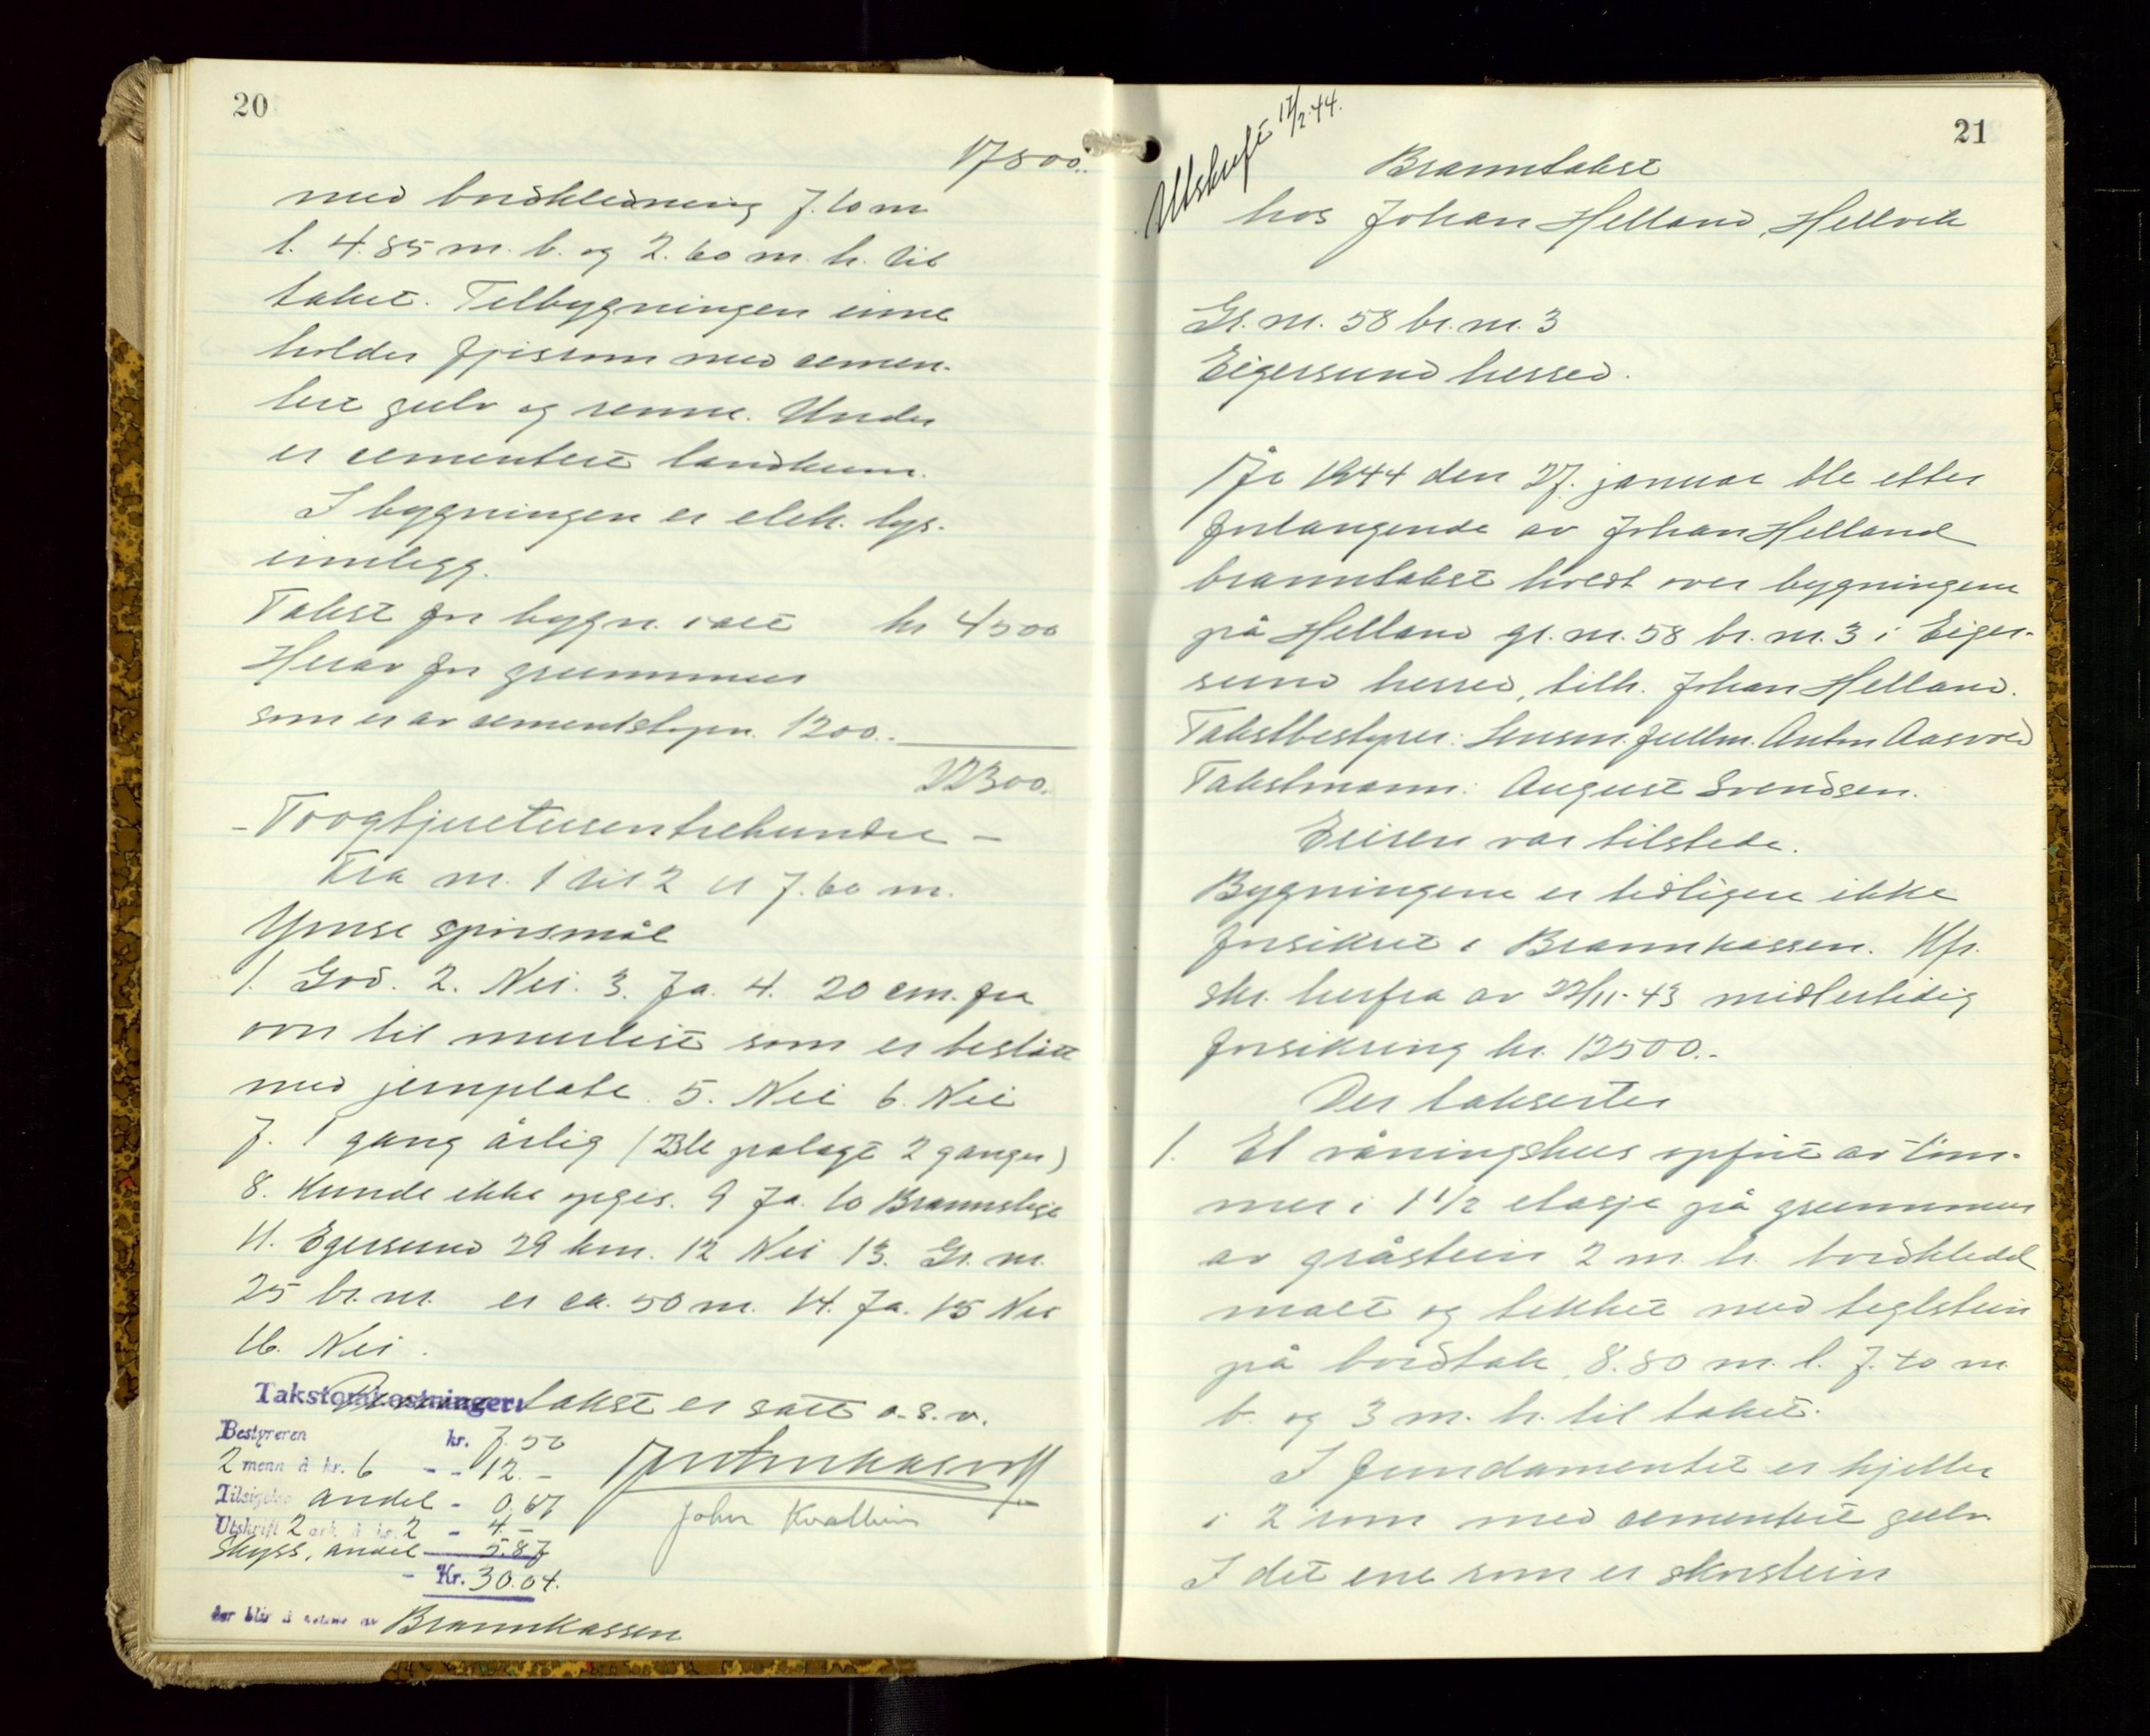 20
17800.-
med bordkledning 7.60 m
l. 4.85 m. b. og 2.60 m. h. til
taket. Tilbygningen inne
holder fjøsrom med cemen-
tert gulv og renne. Under
er cementert landkum.
I bygningen er elek. lys-
innlegg.
Takst for bygn. i alt kr 4500
Herav for grunnmur
som er av cementstøpn. 1200.-
22300.
- Toogtjuetusentrehundre -
Fra nr. 1 til 2 er 7.60 m.
Ymse spørsmål
1. God. 2. Nei. 3. Ja. 4. 20 cm. fra
ovn til murlist som er beslått
med jernplate. 5. Nei 6. Nei
7. 1 gang årlig (Ble pålagt 2 ganger)
8. Kunde ikke opgis. 9 Ja. 10 Brannstige
11. Egersund 29 km. 12 Nei 13. Gr. nr.
25 br. nr. er ca. 50 m. 14. Ja. 15 Nei
16. Nei.
Takstomkostninger:
Denne takst er satt o.s.v.
Bestyreren kr. 7.50
2 menn à kr. 6 - - 12.-
Tilsigelse andel - 0.67
Utskrift 2 ark à kr. 2 - 4.-
Skyss, andel 5.87
- Kr. 30.04.
John Kvalheim
der blir å betale av Brannkassen
21
Utskrift 17/2.44.
Branntakst
hos Johan Helland, Hellvik
Gr. nr. 58 br. nr. 3
Eigersund herred.
År 1944 den 27. januar ble etter
forlangende av Johan Helland
branntakst holdt over bygningene
på Helland gr. nr. 58 br. nr. 3 i Eiger-
sund herred, tilh. Johan Helland.
Takstbestyrer: Lensm. fullm. Anton Aasvold
Takstmann: August Svendsen.
Eieren var tilstede.
Bygningene er tidligere ikke
forsikret i Brannkassen. Kfr.
skr. herfra av 22/11-43 midlertidig
forsikring kr. 12500.-
Der taksertes
1. Et våningshus opført av töm-
mer i 1 1/2 etasje på grunnmur
av gråstein 2 m. h. bordkledd
malt og tekket med teglstein
på bordtak, 8.80 m. l. 7.40 m
b. og 3 m. h. til taket.
I fundamentet er kjeller
i 2 rom med cementert gulv.
I det ene rom er skorstein